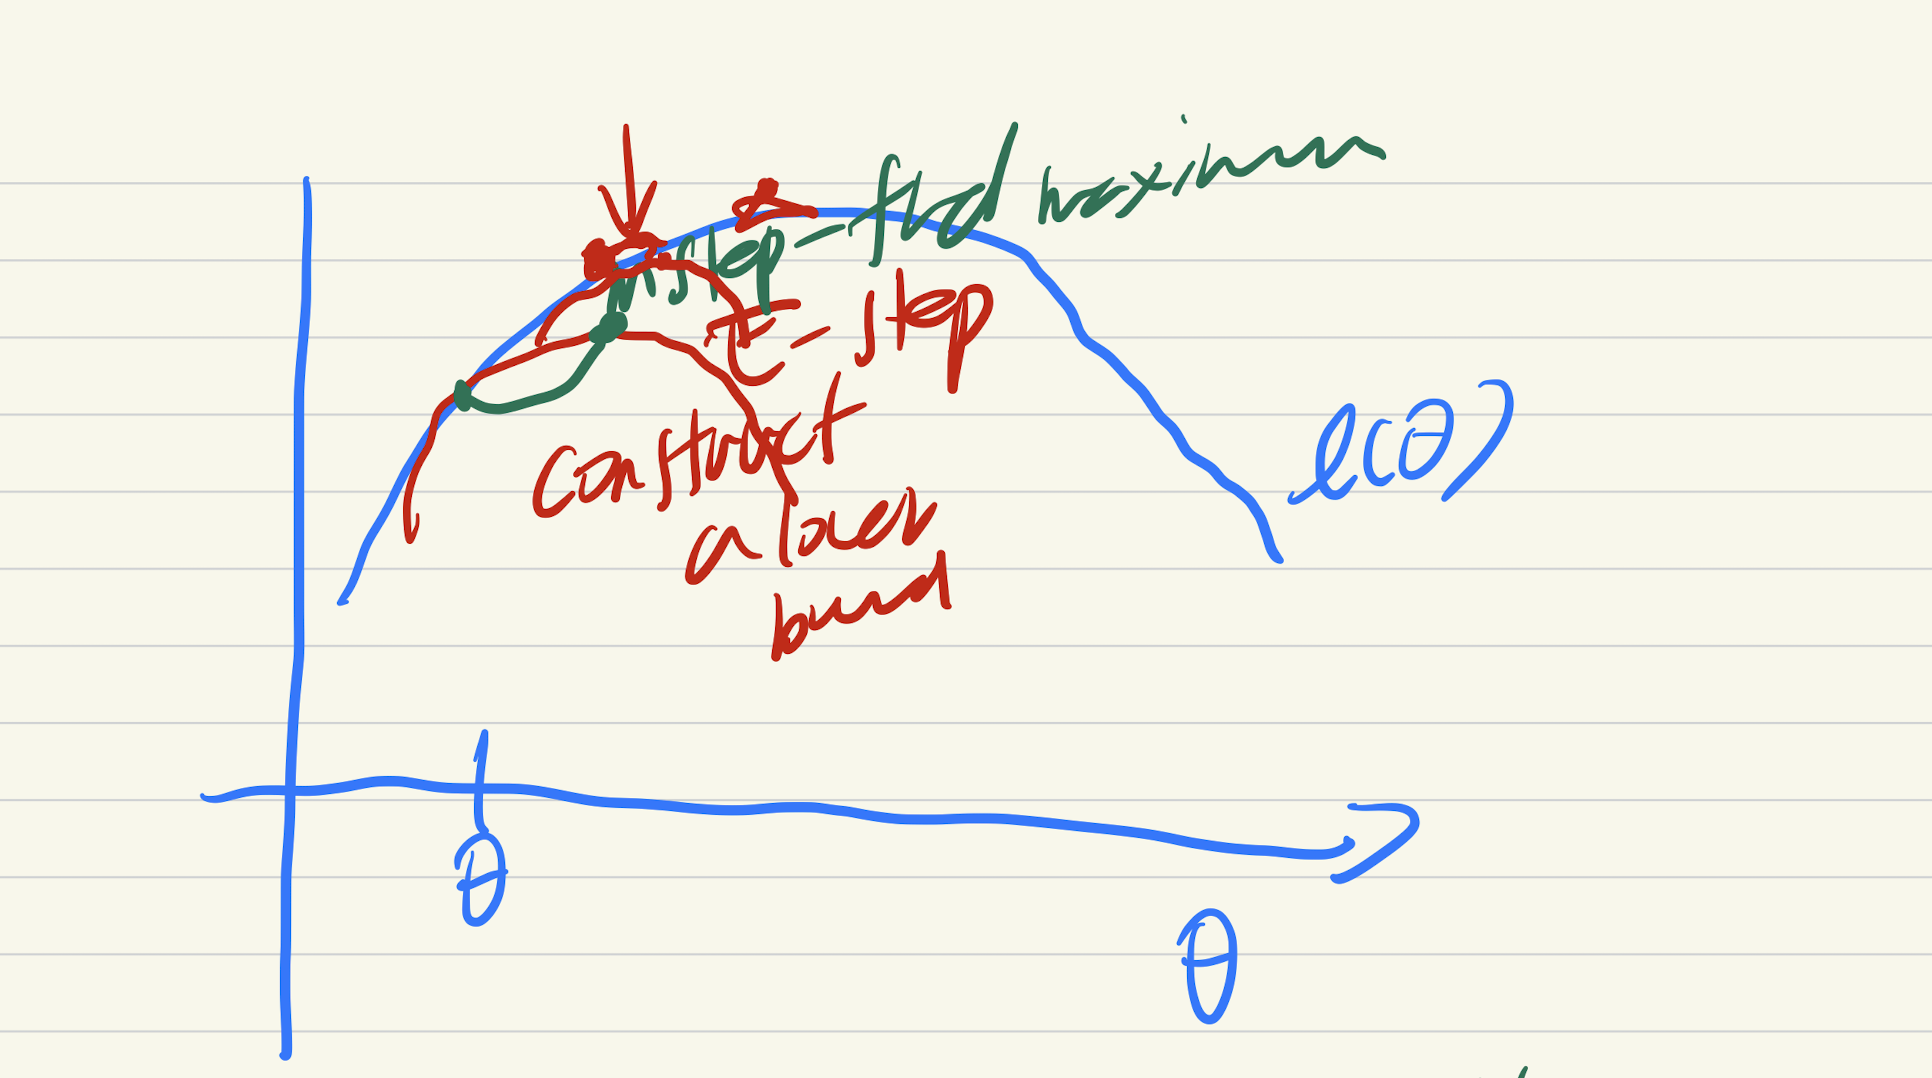 m step - find maximum
E - step
construct
a lower
bound
l(θ)
θ
θ